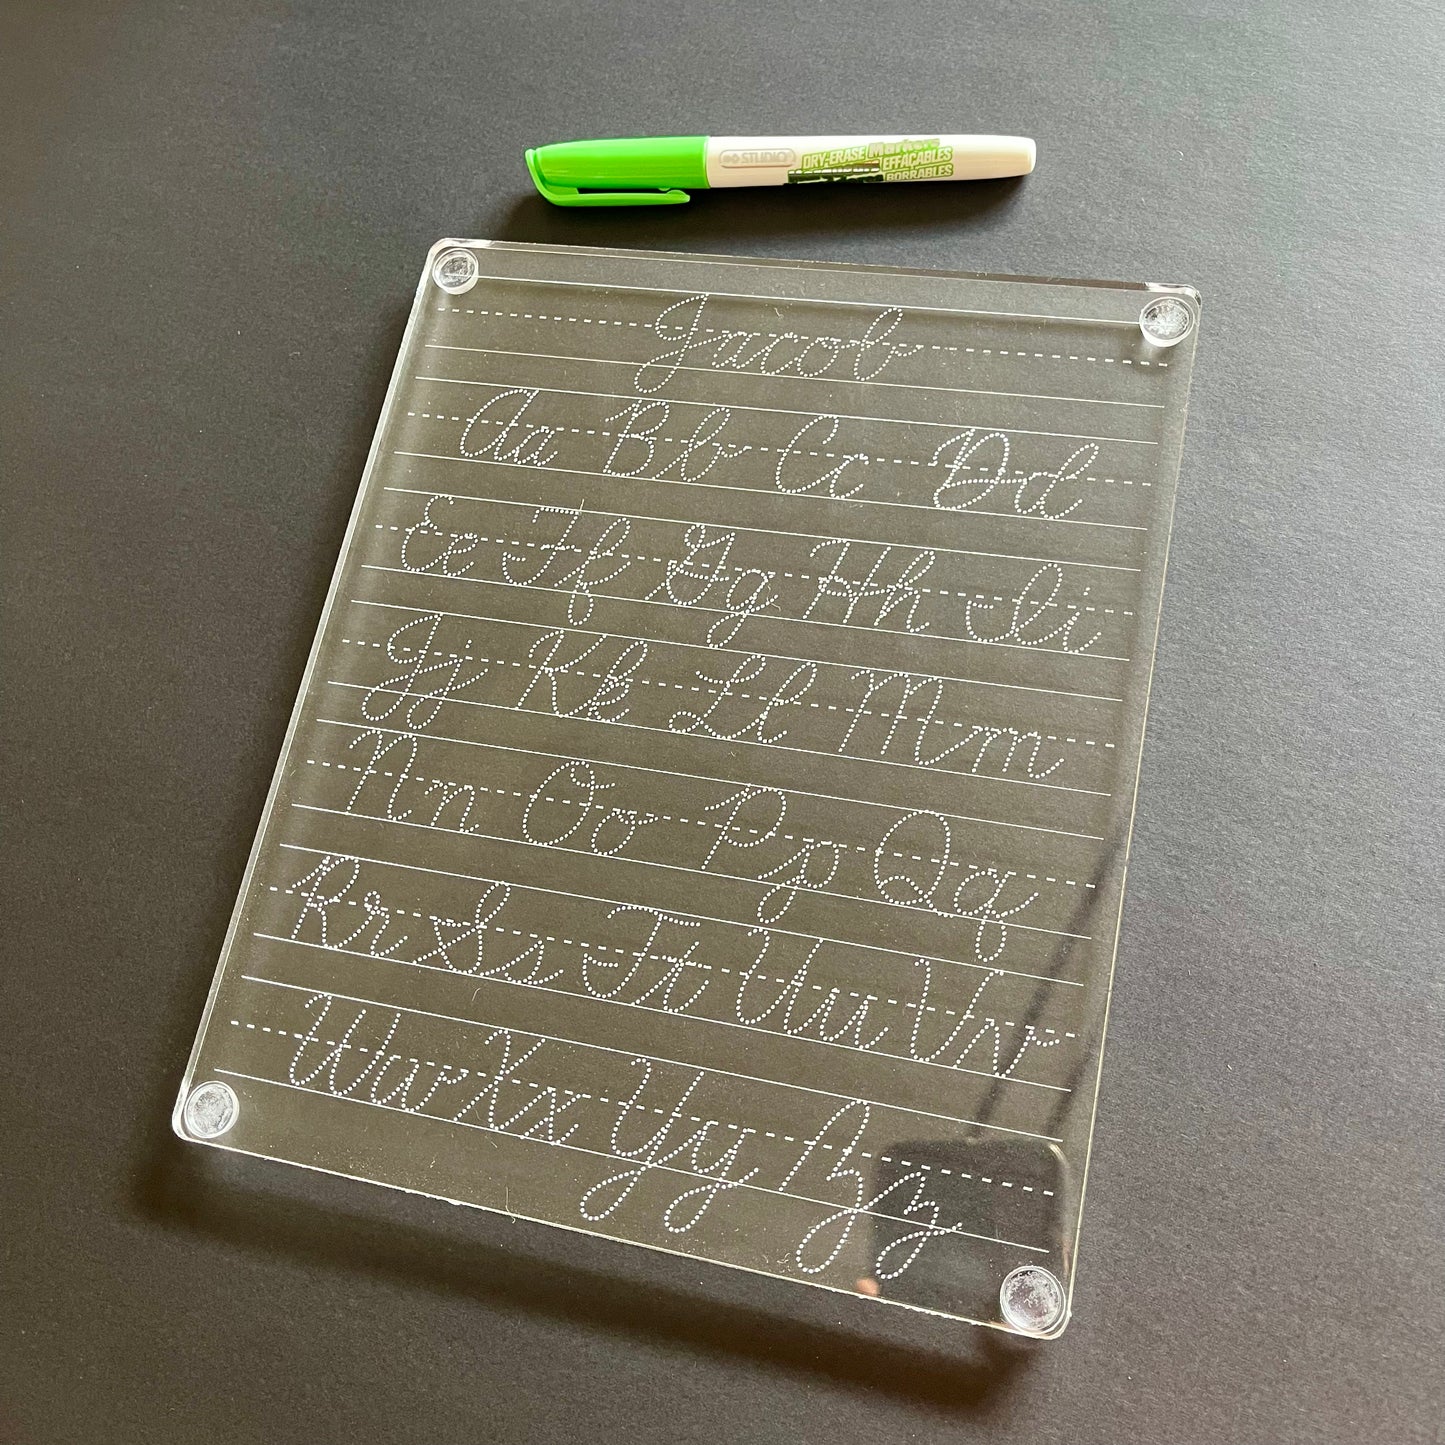 STUDIO
DRY-ERASE Markers
EFFAÇABLES
BORRABLES
Jacob
Aa Bb Cc Dd
Ee Ff Gg Hh Ii
Jj Kk Ll Mm
Nn Oo Pp Qq
Rr Ss Tt Uu Vv
Ww Xx Yy Zz